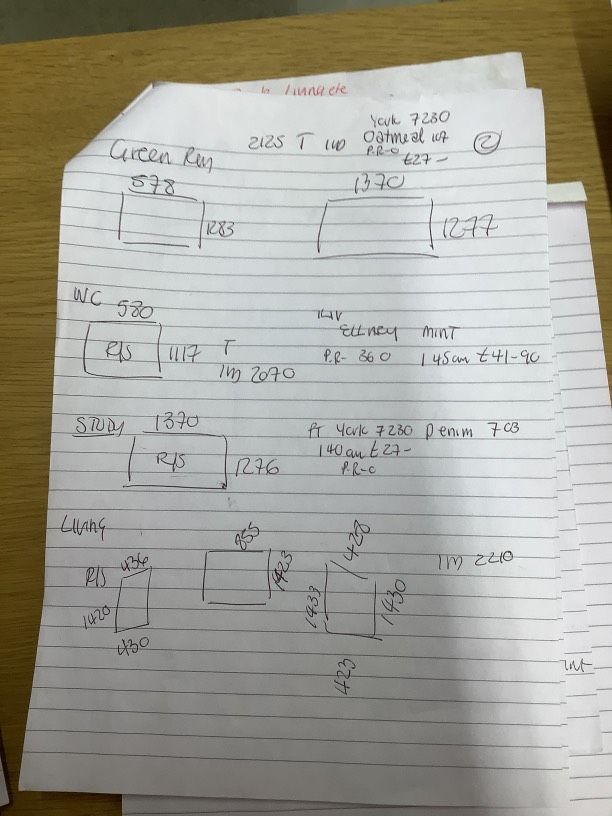 Living etc
York 7230
2125 T 110 Oatmeal 107 ②
P.R-0
£27-
Green Rm
578 1370
1283 1277
WC 580
Ellney MINT
R/S 1117 T P.R- 36 0 145cm £41-90
1m 2070
STUDY 1370 PT York 7230 Denim 703
R/S 1276 140cm £27-
P.R-0
Living 855 428
R/S 436 1423 1m 2210
1420 1433 1430
430 423